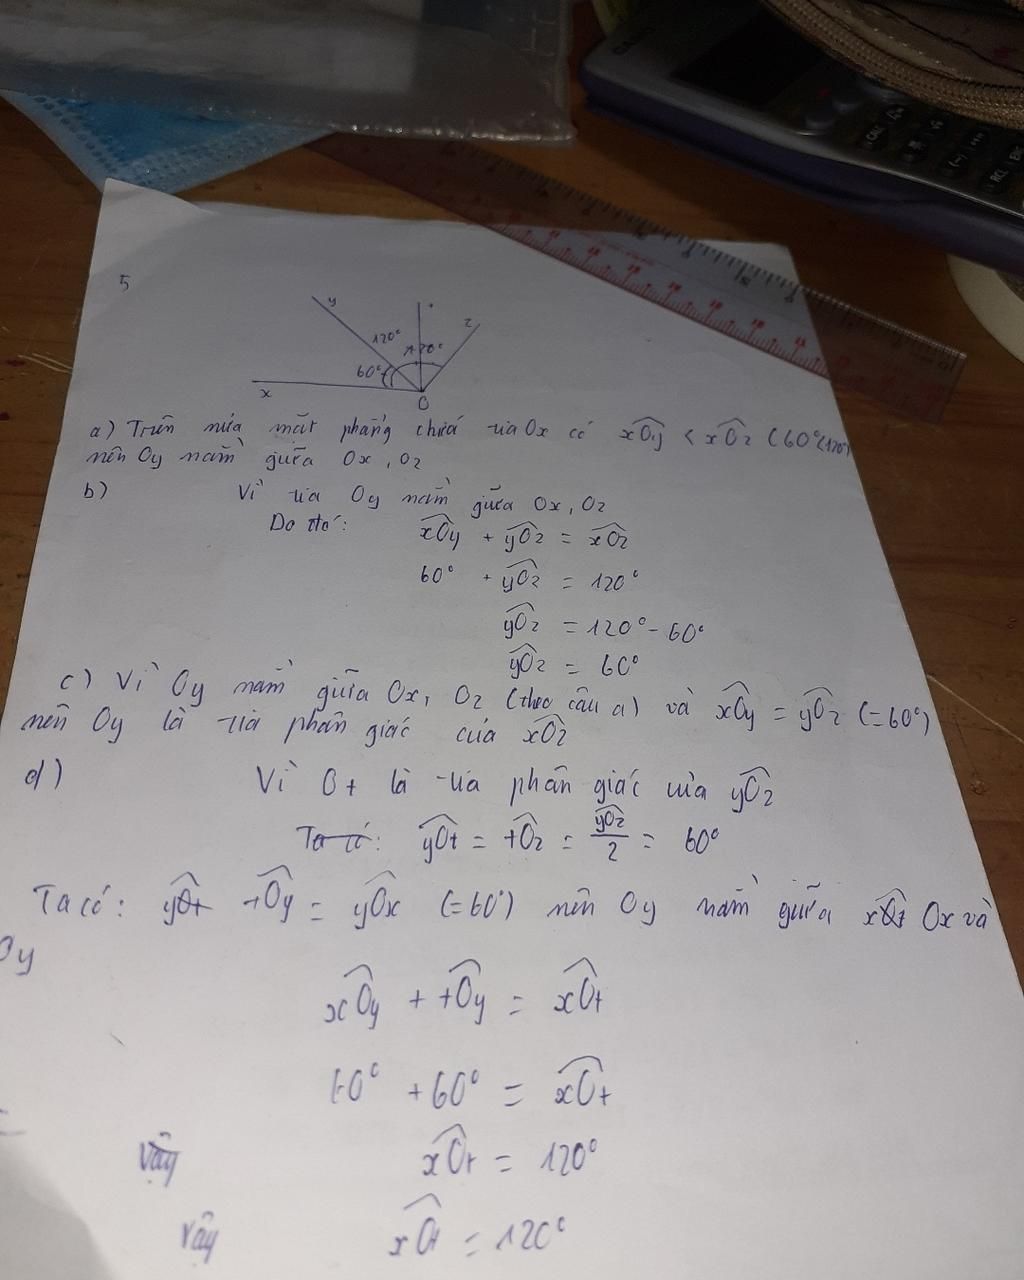 5
y
z
120°
120°
60°
x
O
a) Trên nửa mặt phẳng chứa tia Ox có xOy < xOz (60°<120°)
nên Oy nằm giữa Ox, Oz
b) Vì tia Oy nằm giữa Ox, Oz
Do đó: xOy + yOz = xOz
60° + yOz = 120°
yOz = 120° - 60°
yOz = 60°
c) Vì Oy nằm giữa Ox, Oz (theo câu a) và xOy = yOz (=60°)
nên Oy là tia phân giác của xOz
d) Vì Ot là tia phân giác của yOz
Ta có: yOt = tOz = yOz/2 = 60°
Ta có: yOt tOy = yOx (=60°) nên Oy nằm giữa xOt Ox và
Oy
xOy + tOy = xOt
60° + 60° = xOt
Vậy xOt = 120°
Vậy xOt = 120°